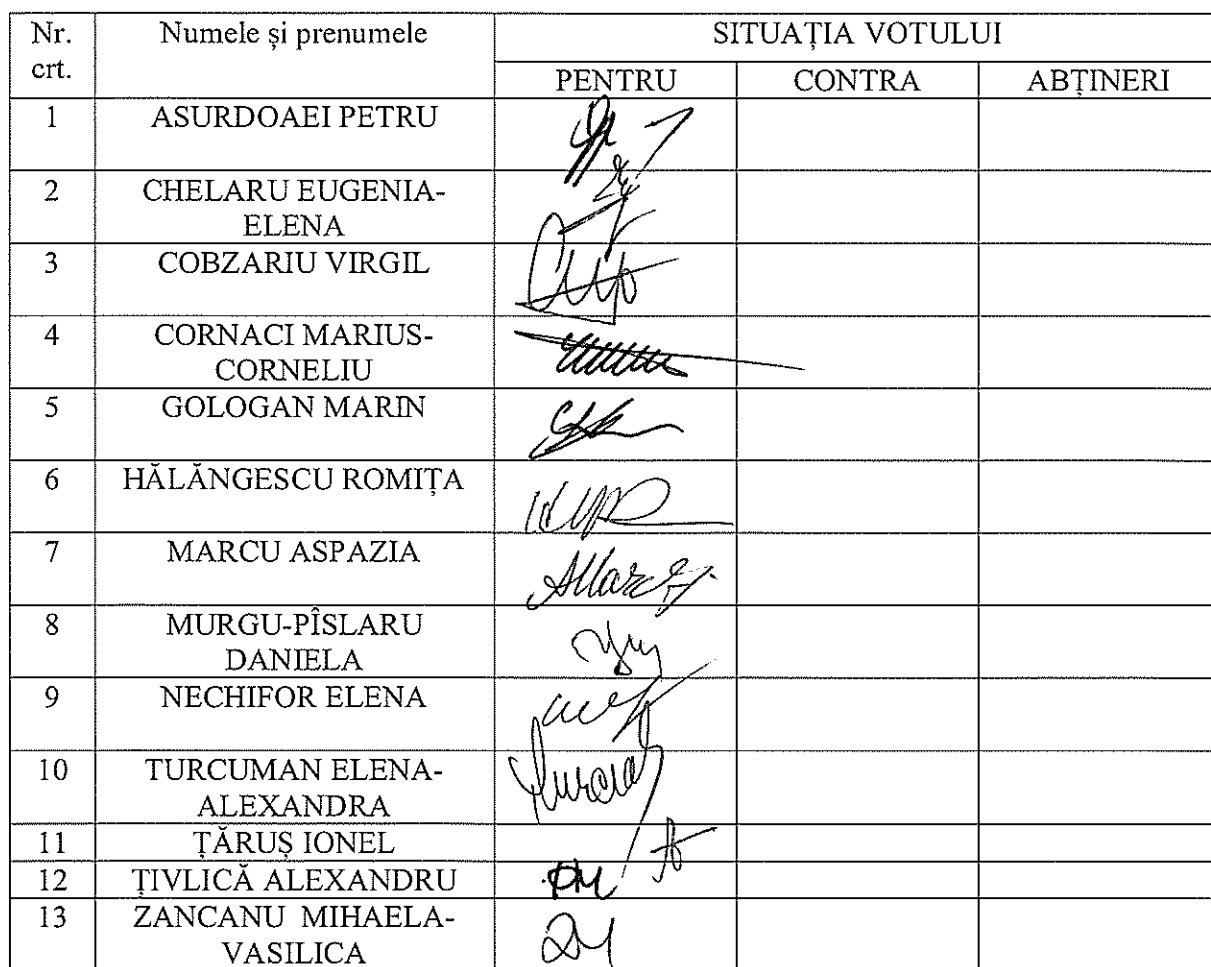 Nr. crt. Numele și prenumele SITUAȚIA VOTULUI
PENTRU CONTRA ABȚINERI
1 ASURDOAEI PETRU
2 CHELARU EUGENIA-
ELENA
3 COBZARIU VIRGIL
4 CORNACI MARIUS-
CORNELIU
5 GOLOGAN MARIN
6 HĂLĂNGESCU ROMIȚA
7 MARCU ASPAZIA
8 MURGU-PÎSLARU
DANIELA
9 NECHIFOR ELENA
10 TURCUMAN ELENA-
ALEXANDRA
11 ȚĂRUȘ IONEL
12 ȚIVLICĂ ALEXANDRU
13 ZANCANU MIHAELA-
VASILICA